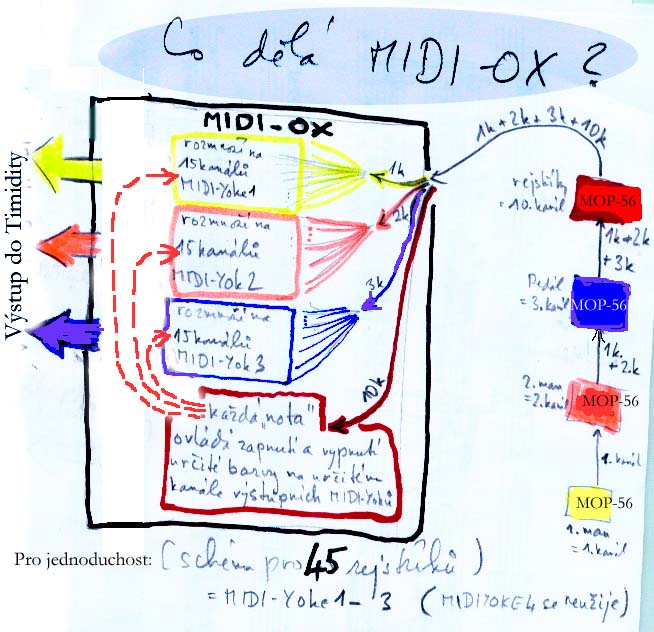 Co dělá MIDI-OX?
MIDI-OX
rozmnoží na
15 kanálů
MIDI-Yoke1
1k
rozmnoží na
15 kanálů
MIDI-Yok 2
2k
rozmnoží na
15 kanálů
MIDI-Yok 3
3k
10k
každá "nota"
ovládá zapnutí a vypnutí
určité barvy na určitém
kanále výstupních MIDI-Yoků
Výstup do Timidity
1k+2k+3k+10k
rejstříky
=10. kanál
MOP-56
1k+2k
+3k
Pedál
=3. kanál
MOP-56
1k.
+2.k
2. man
=2. kanál
MOP-56
1. kanál
MOP-56
1. man
=1. kanál
Pro jednoduchost: (schéma pro 45 rejstříků)
= MIDI-Yoke 1-3 (MIDIYOKE 4 se neužije)